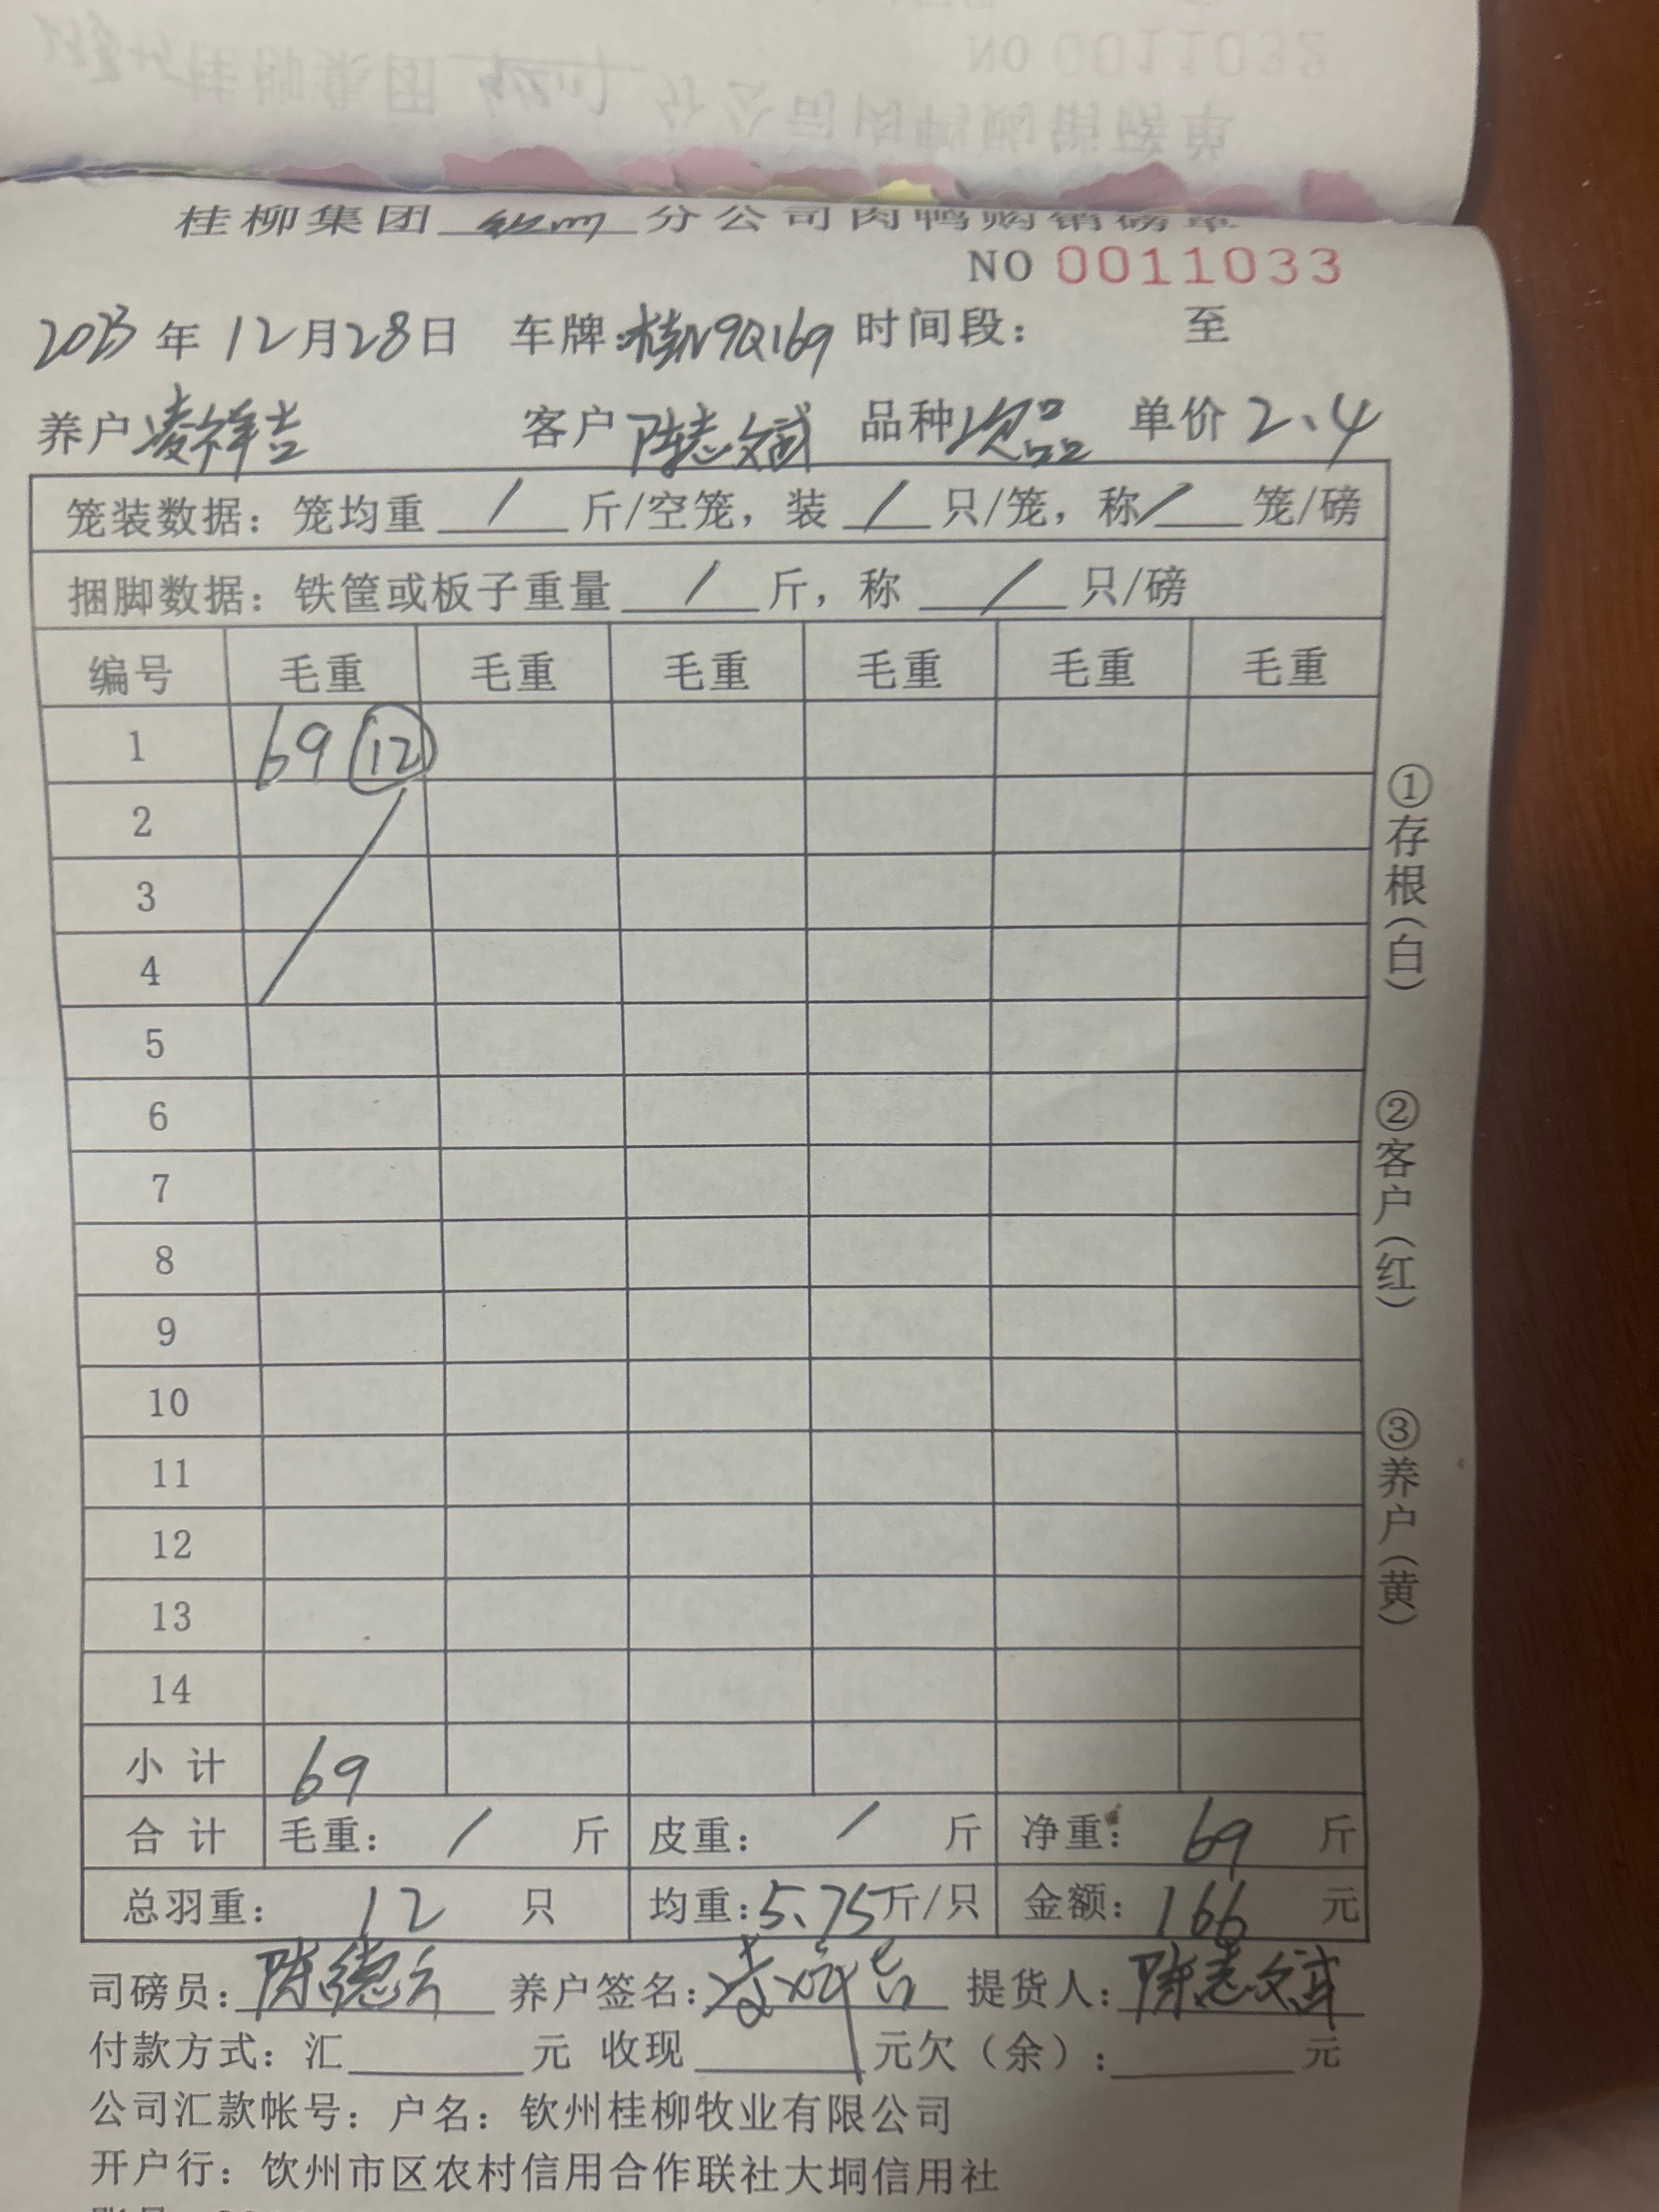 NO 0011032
桂柳集团 分公司肉鸭购销磅单
桂柳集团 分公司肉鸭购销磅单
NO 0011033
2023年12月28日 车牌:桂N9Q169 时间段: 至
养户 凌祥吉 客户 陈志斌 品种 次品 单价 2.4
笼装数据: 笼均重 / 斤/空笼, 装 / 只/笼, 称 / 笼/磅
捆脚数据: 铁筐或板子重量 / 斤, 称 / 只/磅
编号 毛重 毛重 毛重 毛重 毛重 毛重
1 69 ⑫
2
3
4
5
6
7
8
9
10
11
12
13
14
小计 69
合计 毛重: / 斤 皮重: / 斤 净重: 69 斤
总羽重: 12 只 均重: 5.75 斤/只 金额: 166 元
司磅员: 陈德云 养户签名: 凌祥吉 提货人: 陈志斌
付款方式: 汇 元 收现 元欠(余): 元
公司汇款帐号: 户名: 钦州桂柳牧业有限公司
开户行: 饮州市区农村信用合作联社大垌信用社
①存根(白)
②客户(红)
③养户(黄)